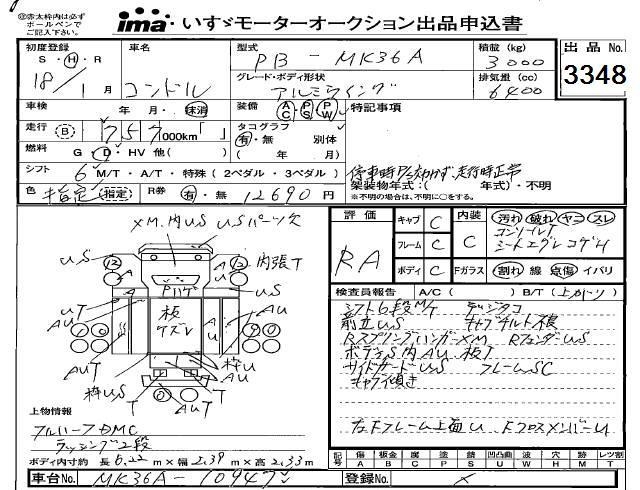 ㊟赤太枠内は必ず
ボールペンで
ご記入下さい。
ima・いすゞモーターオークション出品申込書
初度登録 車名 型式 PB - MK36A 積載 (kg) 3000 出品 No.
S・H・R 18/1月 コンドル グレード・ボディ形状 アルミウイング 排気量 (cc) 6400 3348
車検 年 月・抹消 装備 AC PS PW 特記事項
走行 (B) 757,000km「 」 タコグラフ 有・無 別体
燃料 G・D・HV 他( ) ( 年 月)
シフト 6 M/T・A/T・特殊 (2ペダル・3ペダル) 走行時正常
架装物年式:( 年式)・不明
色 指定 (指定) R券 有・無 12690円
※不明の場合は、不明に○をする。
XM.内US USパーツ欠
評価 RA
キャブ C 内装 C 汚れ 破れ ヤニ スレ
フレーム C シートエグレコゲH
ボディ C Fガラス 割れ 線 点傷 イバリ
US 12 13 内張T
検査員報告 A/C ( ) B/T (上カドリ)
シフト6段M/T デジタコ
前立US
RスプリングハンガーXM RフェンダーUS
ボデーS内AU 板T
サイドガードUS フレームSC
キャブ傾き
左Fフレーム上面U FクロスメンバーU
板
ケズレ
UT
AU
AUT
枠US
枠U
AU
T
AUT
T
上物情報
フルハーフDMC
ラッシング2段
ボディ内寸約 長 6.22 m×幅 2.39 m×高 2.33 m
記号 傷 A 板金 B 腐 C 塗 P 錆 S 凹凸曲 U 波 W 穴 H 跡 M レツ割 T
車台No. MK36A-10947 登録No. ×